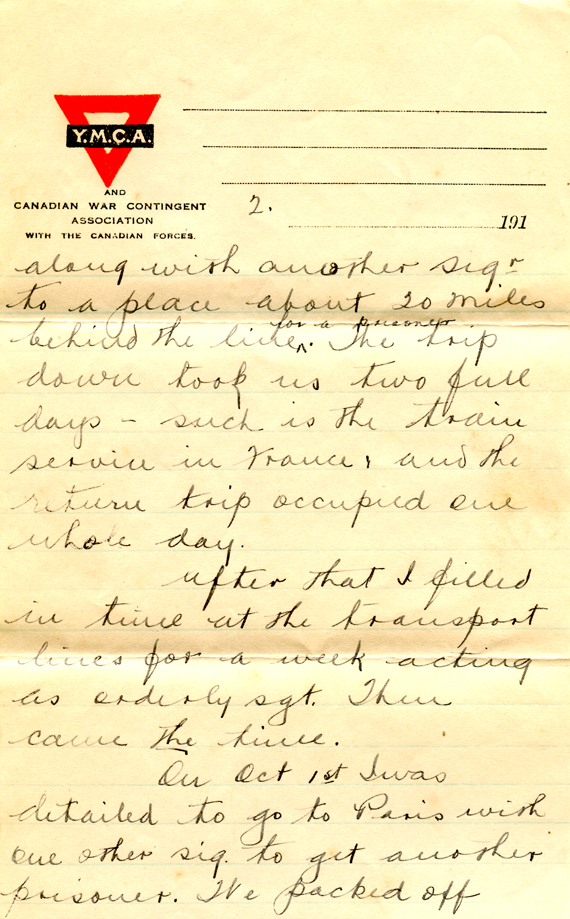 Y.M.C.A.
AND
CANADIAN WAR CONTINGENT
ASSOCIATION
WITH THE CANADIAN FORCES.
2.
191
along with another sigr
to a place about 20 miles
for a prisoner
behind the line. The trip
down took us two full
days - such is the train
service in France; and the
return trip occupied one
whole day.
After that I filled
in time at the transport
lines for a week acting
as orderly sgt. Then
came the time.
On Oct 1st I was
detailed to go to Paris with
one other sig. to get another
prisoner. We packed off